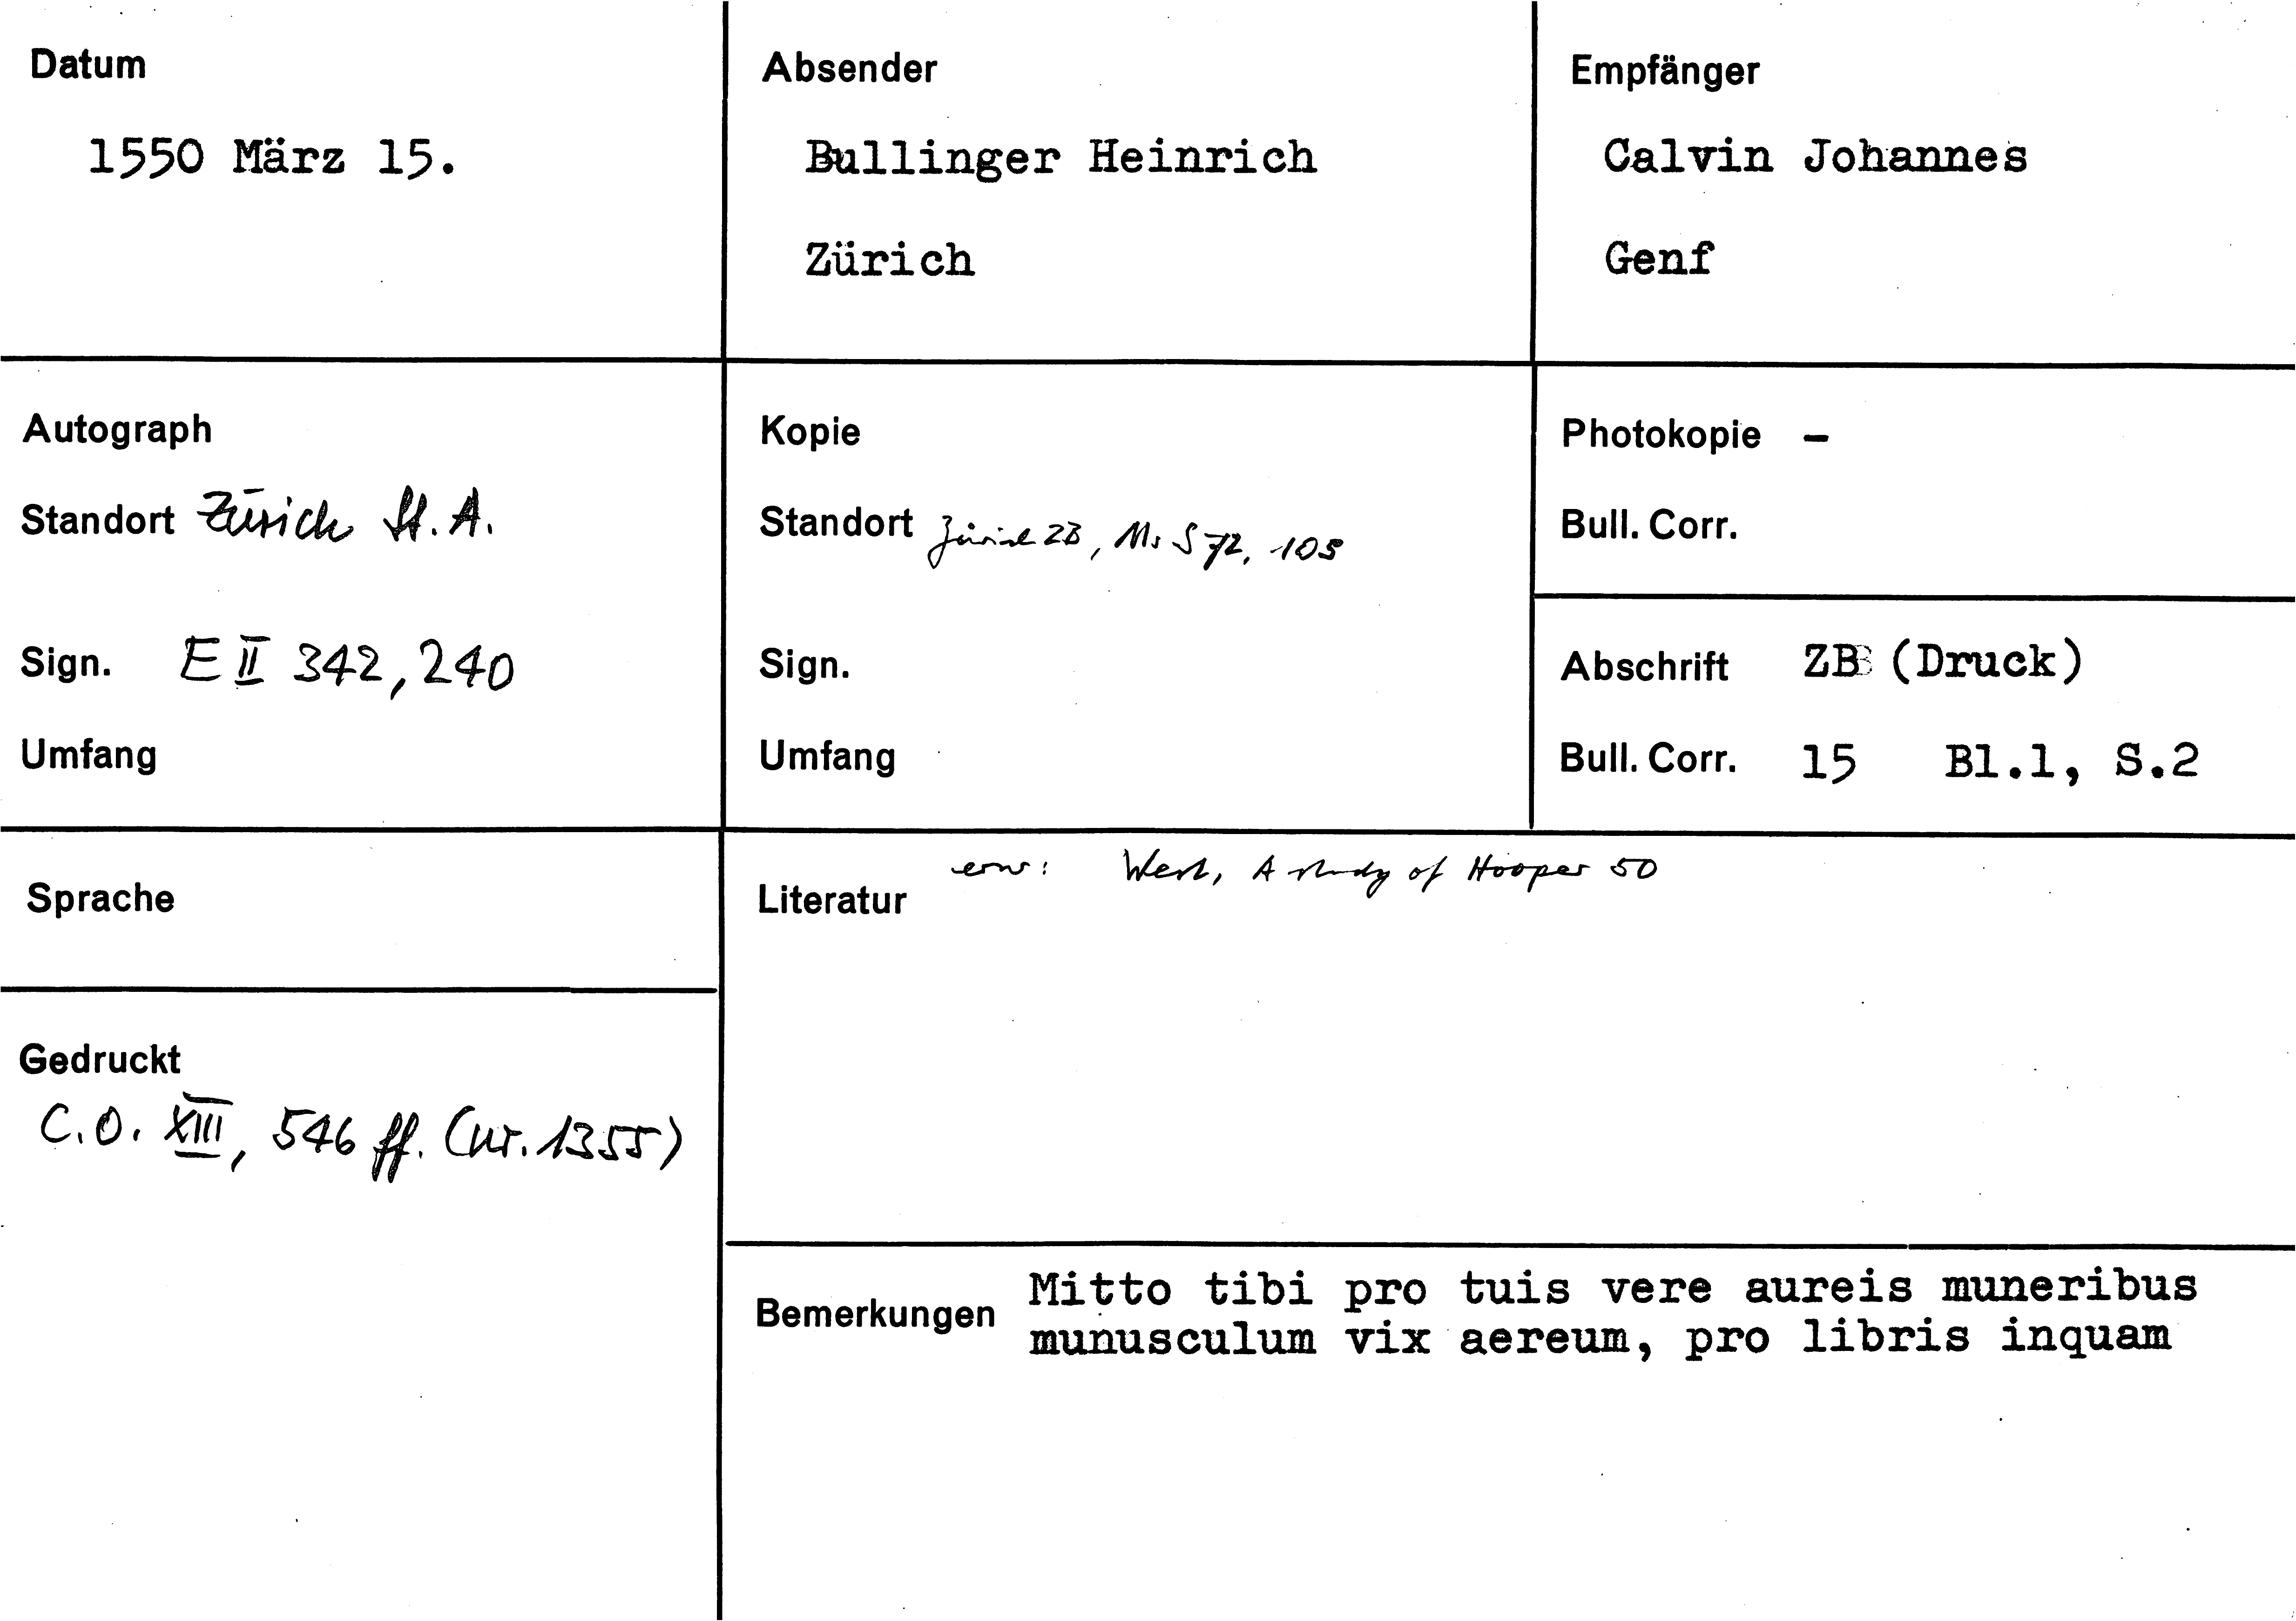 Datum
1550 März 15.
Absender
Bullinger Heinrich
Zürich
Empfänger
Calvin Johannes
Genf
Autograph
Standort Zürich St. A.
Sign. E II 342, 240
Umfang
Kopie
Standort Zürich ZB, Ms S 72, 105
Sign.
Umfang
Photokopie –
Bull. Corr.
Abschrift ZB (Druck)
Bull. Corr. 15 Bl.1, S.2
Sprache
Gedruckt
C.O. XIII, 546 ff. (nr. 1355)
Literatur erw: West, A study of Hooper 50
Bemerkungen Mitto tibi pro tuis vere aureis muneribus
munusculum vix aereum, pro libris inquam